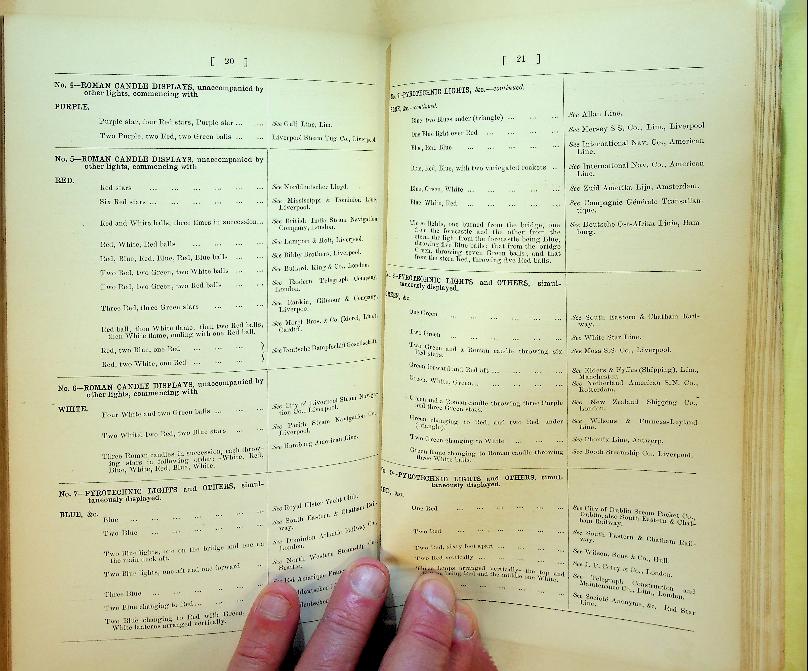 [ 20 ]
No. 4—ROMAN CANDLE DISPLAYS, unaccompanied by
other lights, commencing with
PURPLE.
Purple star, four Red stars, Purple star ... ... See Gulf Line, Lim.
Two Purple, two Red, two Green balls ... ... Liverpool Steam Tug Co., Liverpool
No. 5—ROMAN CANDLE DISPLAYS, unaccompanied by
other lights, commencing with
RED.
Red stars ... ... ... ... ... ... See Norddeutscher Lloyd.
Six Red stars ... ... ... ... ... See Mississippi & Dominion Line,
Liverpool.
Red and White balls, three times in succession... See British India Steam Navigation
Company, London.
Red, White, Red balls ... ... ... ... See Lamport & Holt, Liverpool.
Red, Blue, Red, Blue, Red, Blue balls ... ... See Bibby Brothers, Liverpool.
Two Red, two Green, two White balls ... ... See Bullard, King & Co., London.
Two Red, two Green, two Red balls ... ... See Eastern Telegraph Company,
London.
Three Red, three Green stars ... ... ... See Rankin, Gilmour & Company,
Liverpool.
Red ball, then White flame, then two Red balls,
then White flame, ending with one Red ball.
Red, two Blue, one Red ... ... ... }
Red, two White, one Red ... ... ... }
No. 6—ROMAN CANDLE DISPLAYS, unaccompanied by
other lights, commencing with
WHITE.
Four White and two Green balls ... ... ... See City of Liverpool Steam Navigation Co., Liverpool.
Two White, two Red, two Blue stars ... ... See Pacific Steam Navigation Co.,
Liverpool.
Three Roman candles in succession, each throwing stars in following order:—White, Red, See Hamburg American Line.
Blue, White, Red, Blue, White.
No. 7—PYROTECHNIC LIGHTS and OTHERS, simultaneously displayed.
BLUE, &c.
Blue ... ... ... ... ... ... See Royal Ulster Yacht Club.
Two Blue ... ... ... ... ... See South Eastern & Chatham Railway.
Two Blue lights, one on the bridge and one on See Dominion Atlantic Railway Co.,
the main deck aft. London.
Two Blue lights, one aft and one forward ... See North Western Steamship Co.,
Three Blue ... ... ... ... ...
Two Blue changing to Red... ... ...
Two Blue changing to Red with Green,
White lanterns arranged vertically.
[ 21 ]
PYROTECHNIC LIGHTS, &c.—continued.
&c.—continued.
One, two Blues under (triangle) ... ... ... See Allan Line.
One Blue light over Red ... ... ... ... See Mersey S.S. Co., Lim., Liverpool
Blue, Red, Blue ... ... ... ... See International Nav. Co., American
Line.
Blue, Red, Blue, with two variegated rockets ... See International Nav. Co., American
Line.
Blue, Green, White ... ... ... ... See Zuid Amerika Lijn, Amsterdam.
Blue, White, Red ... ... ... ... See Compagnie Générale Transatlantique.
Three lights, one burned from the bridge, one See Deutsche Ost-Afrika Linie, Hamburg.
from the forecastle and the other from the
stern, the light from the forecastle being Blue,
throwing five Blue balls; that from the bridge
Green, throwing seven Green balls, and that
from the stern Red, throwing five Red balls.
PYROTECHNIC LIGHTS and OTHERS, simultaneously displayed.
GREEN, &c.
One Green ... ... ... ... ... See South Eastern & Chatham Railway.
Two Green ... ... ... ... ... See White Star Line.
Two Green and a Roman candle throwing six See Moss S.S. Co., Liverpool.
Red stars.
Green forward and Red aft ... ... ... See Elders & Fyffes (Shipping), Lim.,
Manchester.
Green, White, Green... ... ... ... See Netherland American S.N. Co.,
Rotterdam.
Green and a Roman candle throwing three Purple See New Zealand Shipping Co.,
and three Green stars. London.
Green changing to Red, and two Red under See Wilsons & Furness-Leyland
(triangle). Line.
Two Green changing to White ... ... ... See Phœnix Line, Antwerp.
Green flame changing to Roman candle throwing See Booth Steamship Co., Liverpool.
three White balls.
PYROTECHNIC LIGHTS and OTHERS, simultaneously displayed.
RED, &c.
One Red ... ... ... ... ... See City of Dublin Steam Packet Co.,
Dublin, also South Eastern & Chatham Railway.
Two Red ... ... ... ... ... See South Eastern & Chatham Railway.
Two Red, sixty feet apart ... ... ... See Wilson, Sons & Co., Hull.
Two Red vertically ... ... ... ...
Three lamps arranged vertically, the top and See Telegraph Construction and
being Red and the middle one White. Maintenance Co., Lim., London.
See Société Anonyme, &c. Red Star
Line.